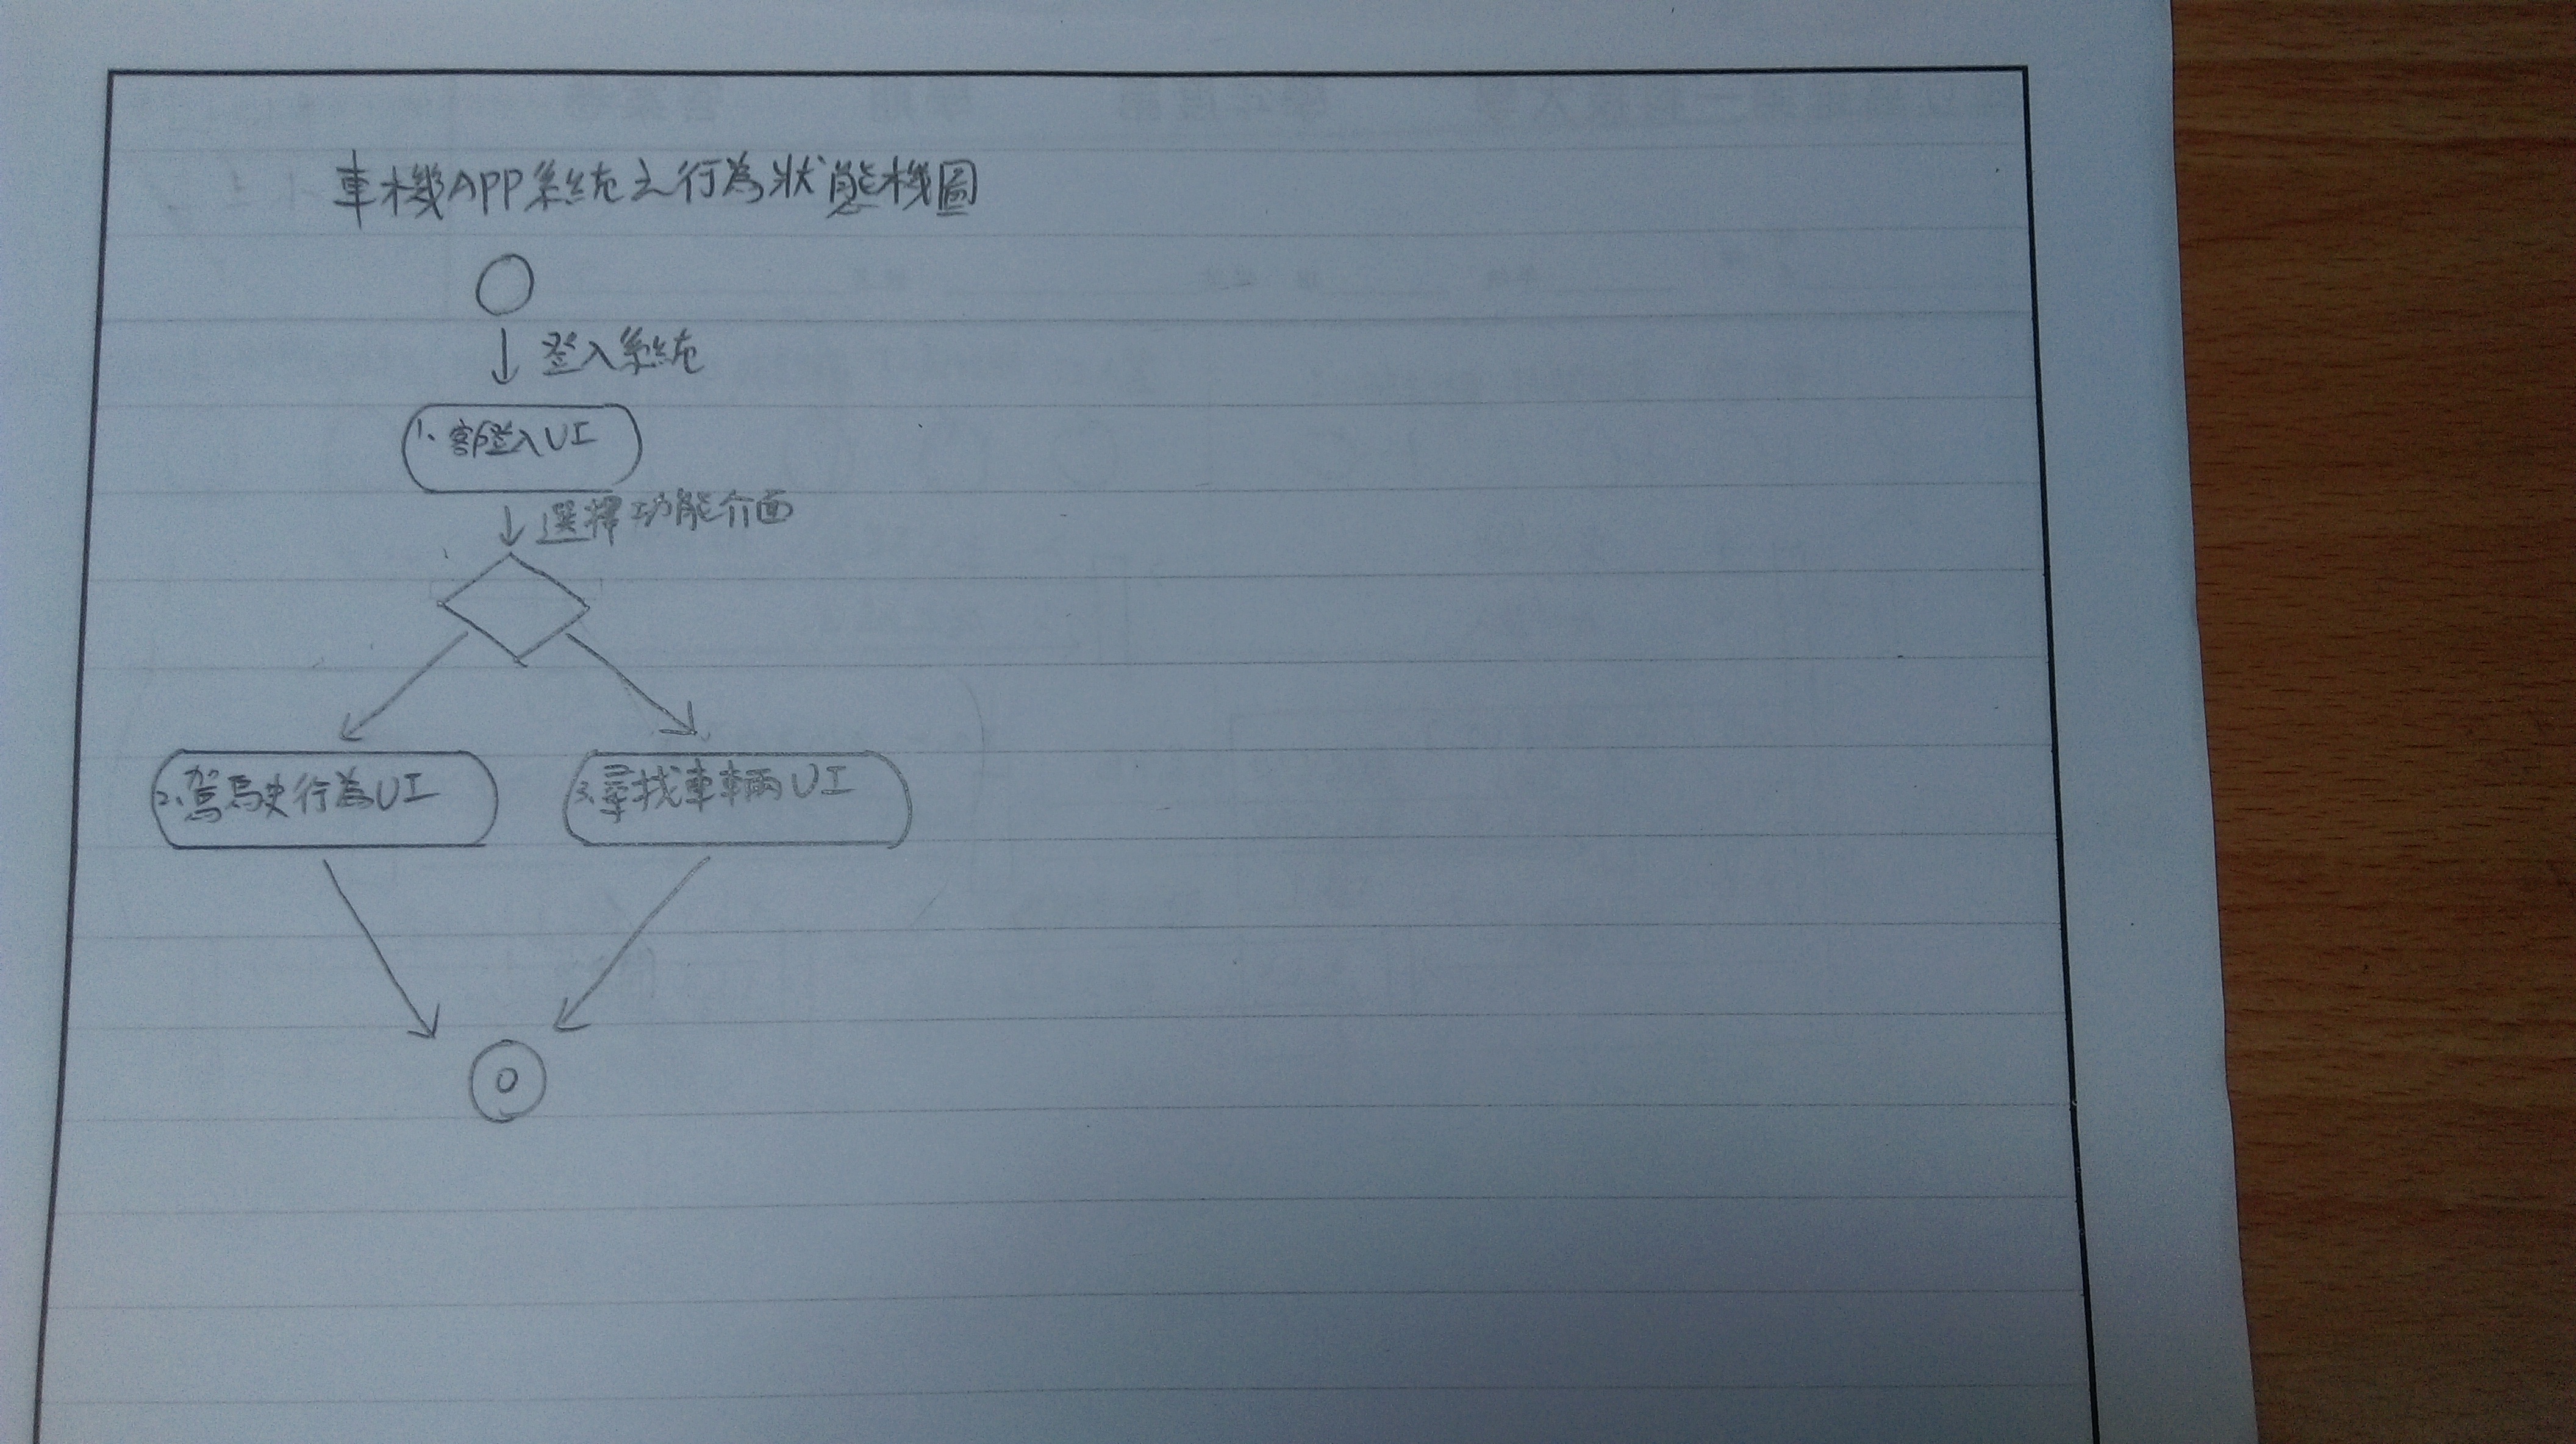 車機APP系統之行為狀態機圖
登入系統
1、客戶登入UI
選擇功能介面
2、駕駛行為UI
3、尋找車輛UI